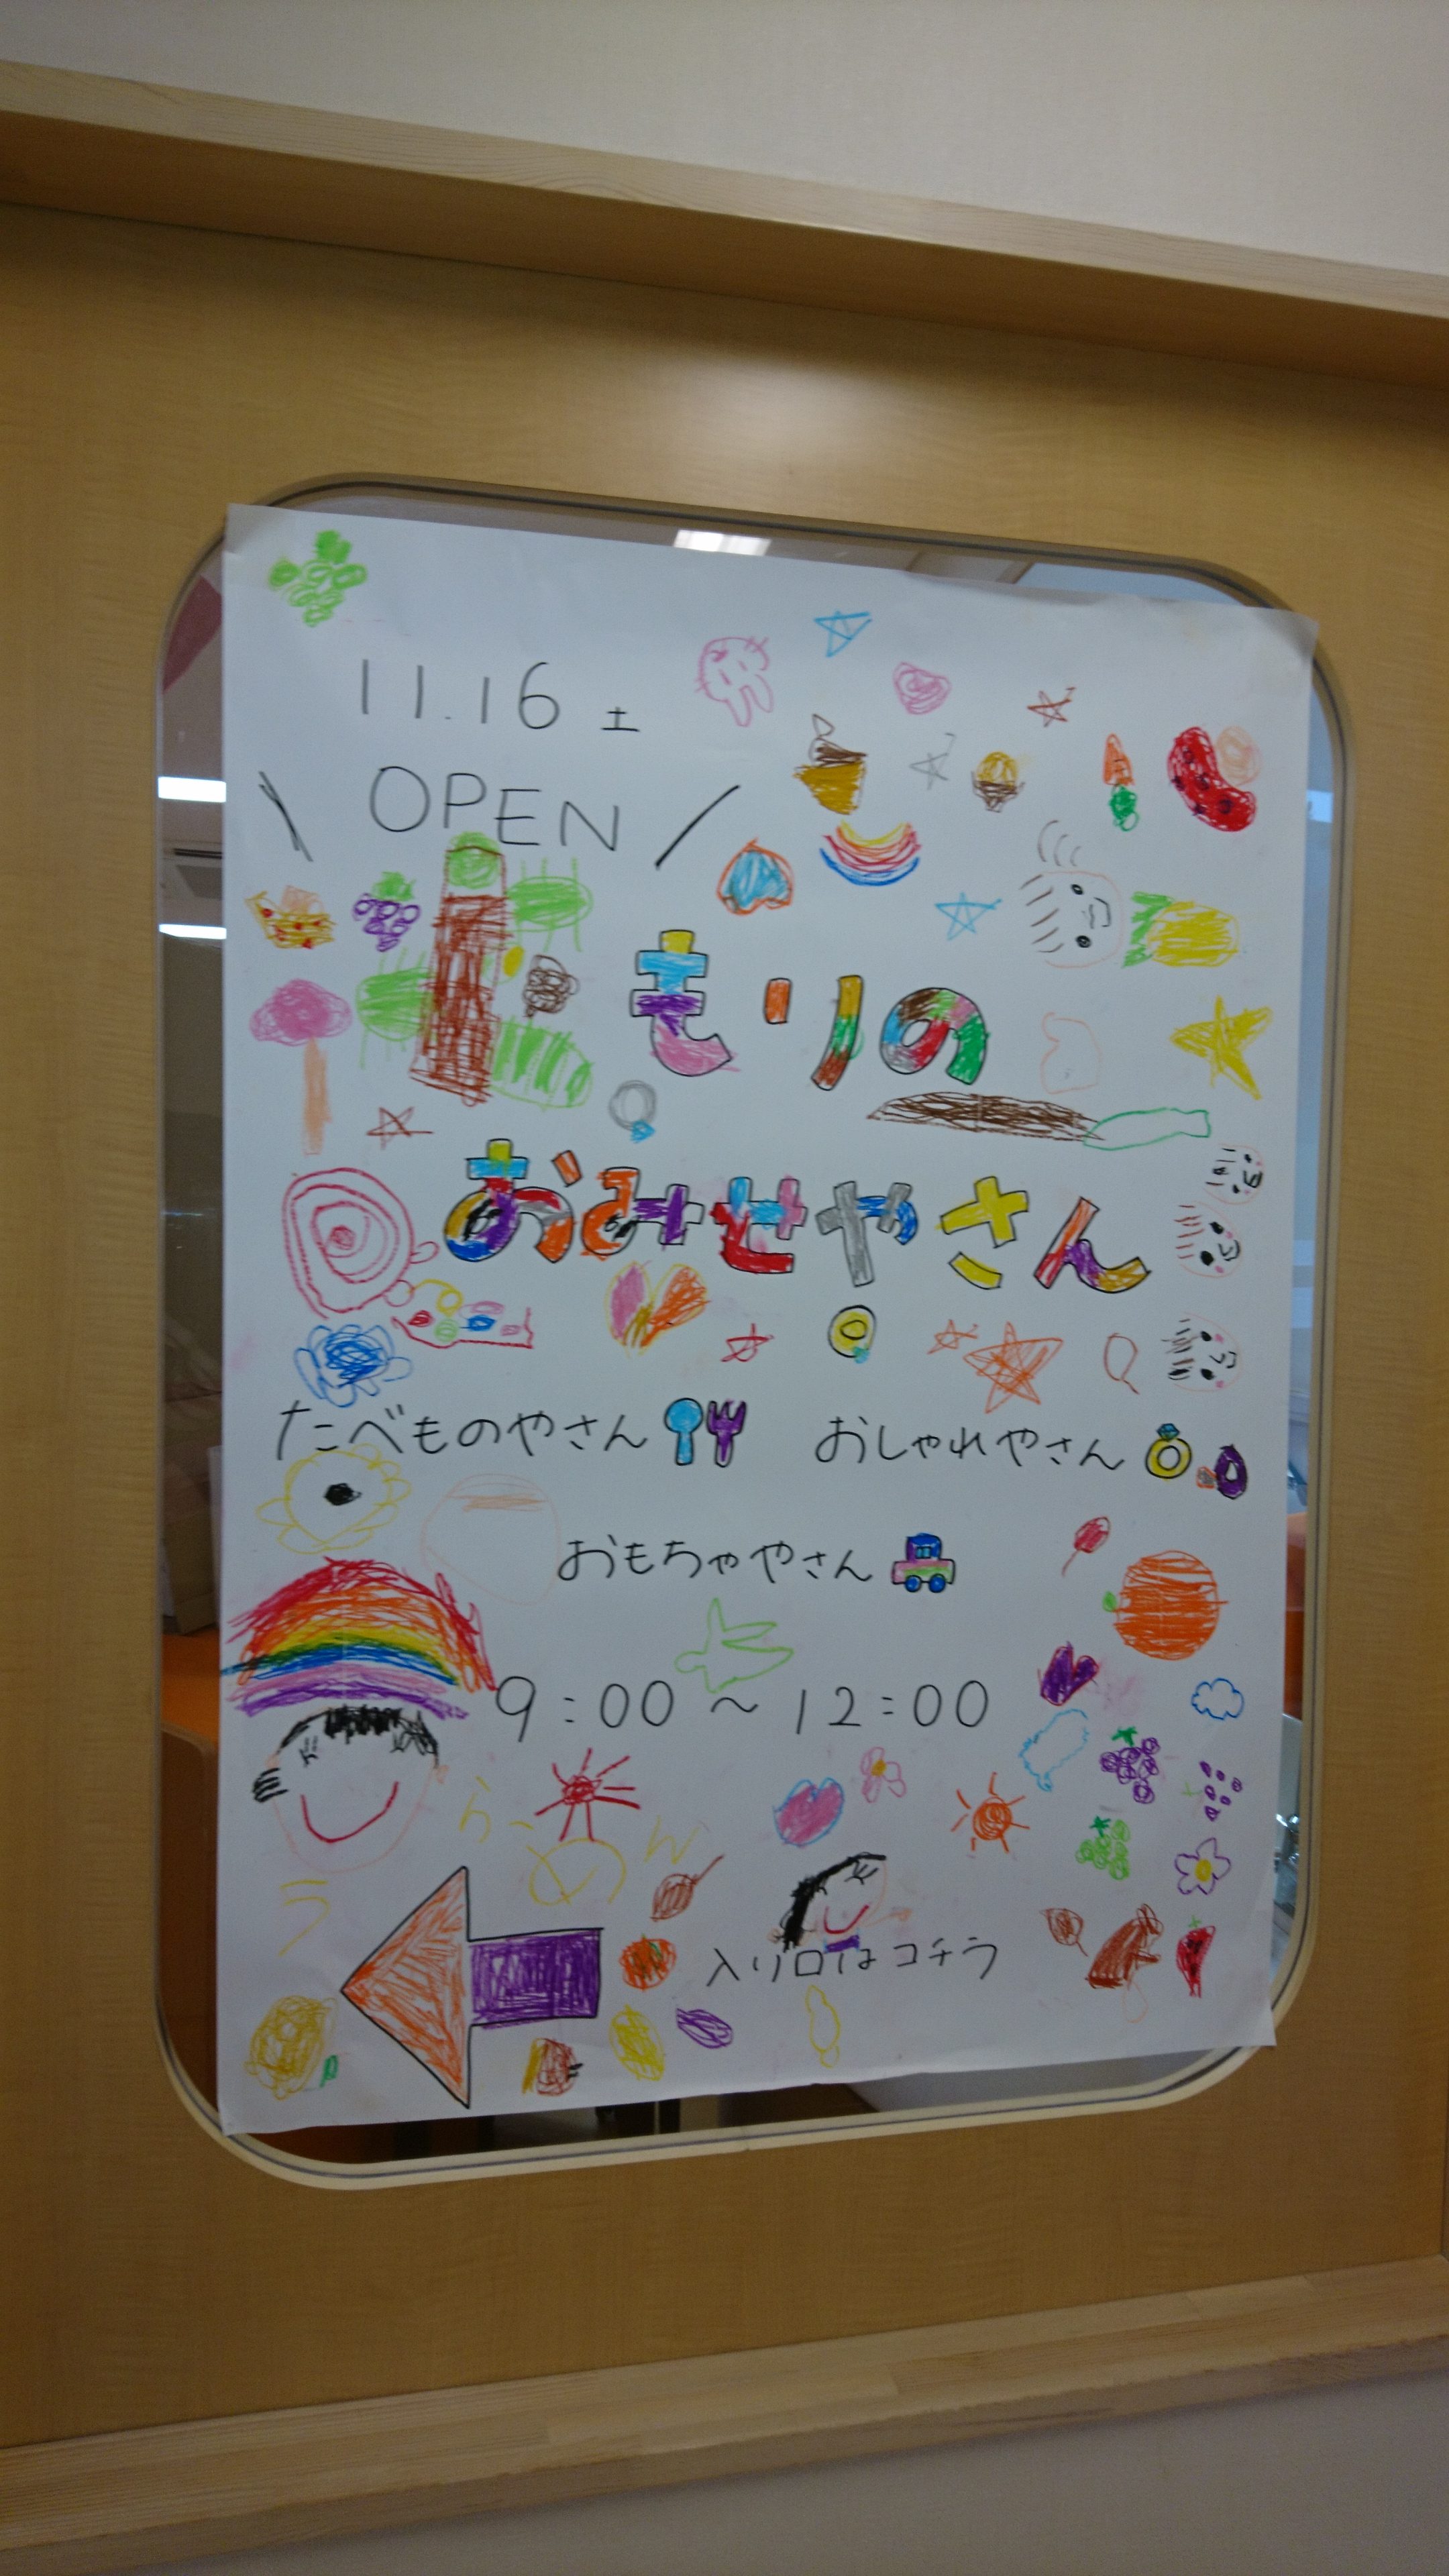 11.16 土
\ OPEN /
もりの
おみせやさん
たべものやさん おしゃれやさん
おもちゃやさん
9:00～12:00
入り口はコチラ